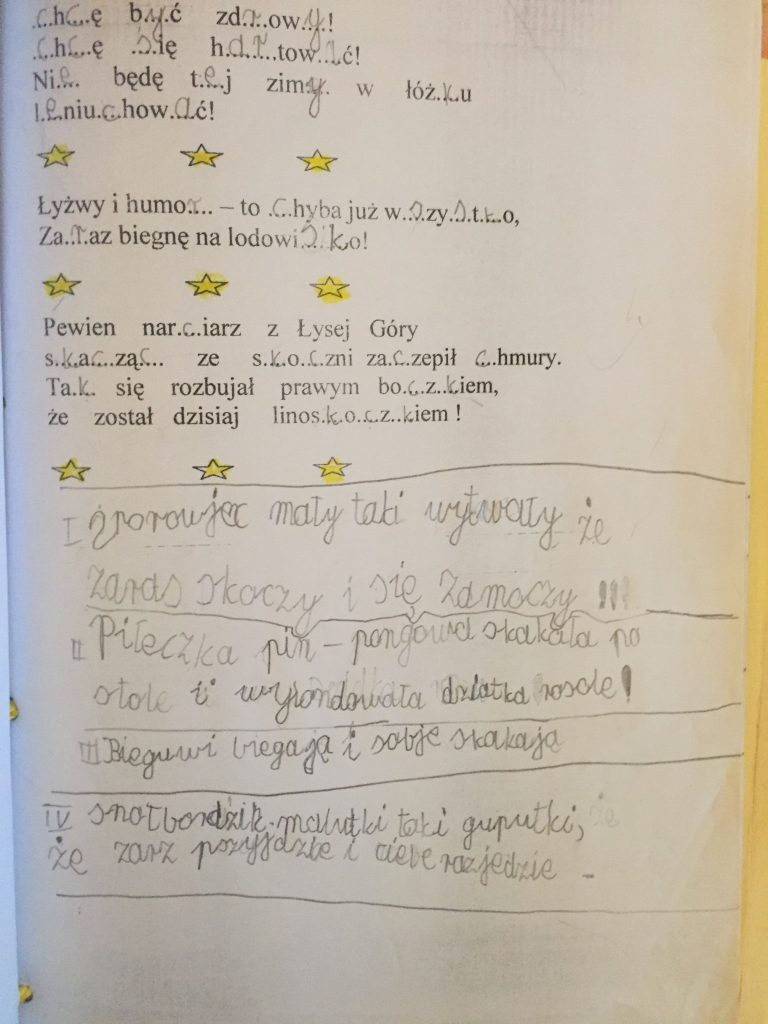 .c.hc..ę b.y.ć zd.r..ow.y.!
.c.hc..ę .s.ię h.a.r...tow..a.ć!
Ni.e.. będę t.e.j zim.y. w łóż.k.u
l.e.niu.c.how.a.ć!
Łyżwy i humo.r... – to .c.hyba już w..s.zy.s.t.k.o,
Za..r.az biegnę na lodowi.s.ko!
Pewien nar.c.iarz z Łysej Góry
s.k.a.c..ząc... ze s.k.o.c.zni za.c.zepił c.hmury.
Ta.k. się rozbujał prawym bo.c.z.k.iem,
że został dzisiaj linos.k.o.c.z..kiem !
I żporowjec mały taki wytwały że
zaras skoczy i się zamoczy !!!
II Piłeczka pin – pongowa skakała po
stole i wyrondowała dziatka rosole!
III Bieguwi biegają i sobje skakają
IV snołbordzik malutki taki guputki,
że zarz pszyjdzie i ciebe razjedzie -